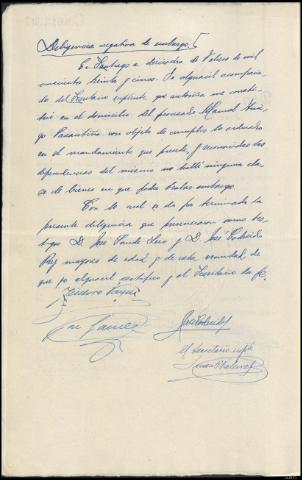 Diligencia negativa de embargo
En Santiago a dieciocho de Febrero de mil
novecientos treinta y cinco. Yo alguacil acompaña-
do del Secretario suplente que autoriza me consti-
tuí en el domicilio del procesado Manuel
con objeto de cumplir lo ordenado
en el mandamiento que precede, y reconocidas las
dependencias del mismo no hallé ninguna cla-
se de bienes en que poder trabar embargo.
Con lo cual se da por terminada la
presente diligencia que presenciaron como tes-
tigos D. José y D. José
Rey mayores de edad, y de esta vecindad, de
que yo alguacil certifico y el Secretario da fe.
El Secretario suplte